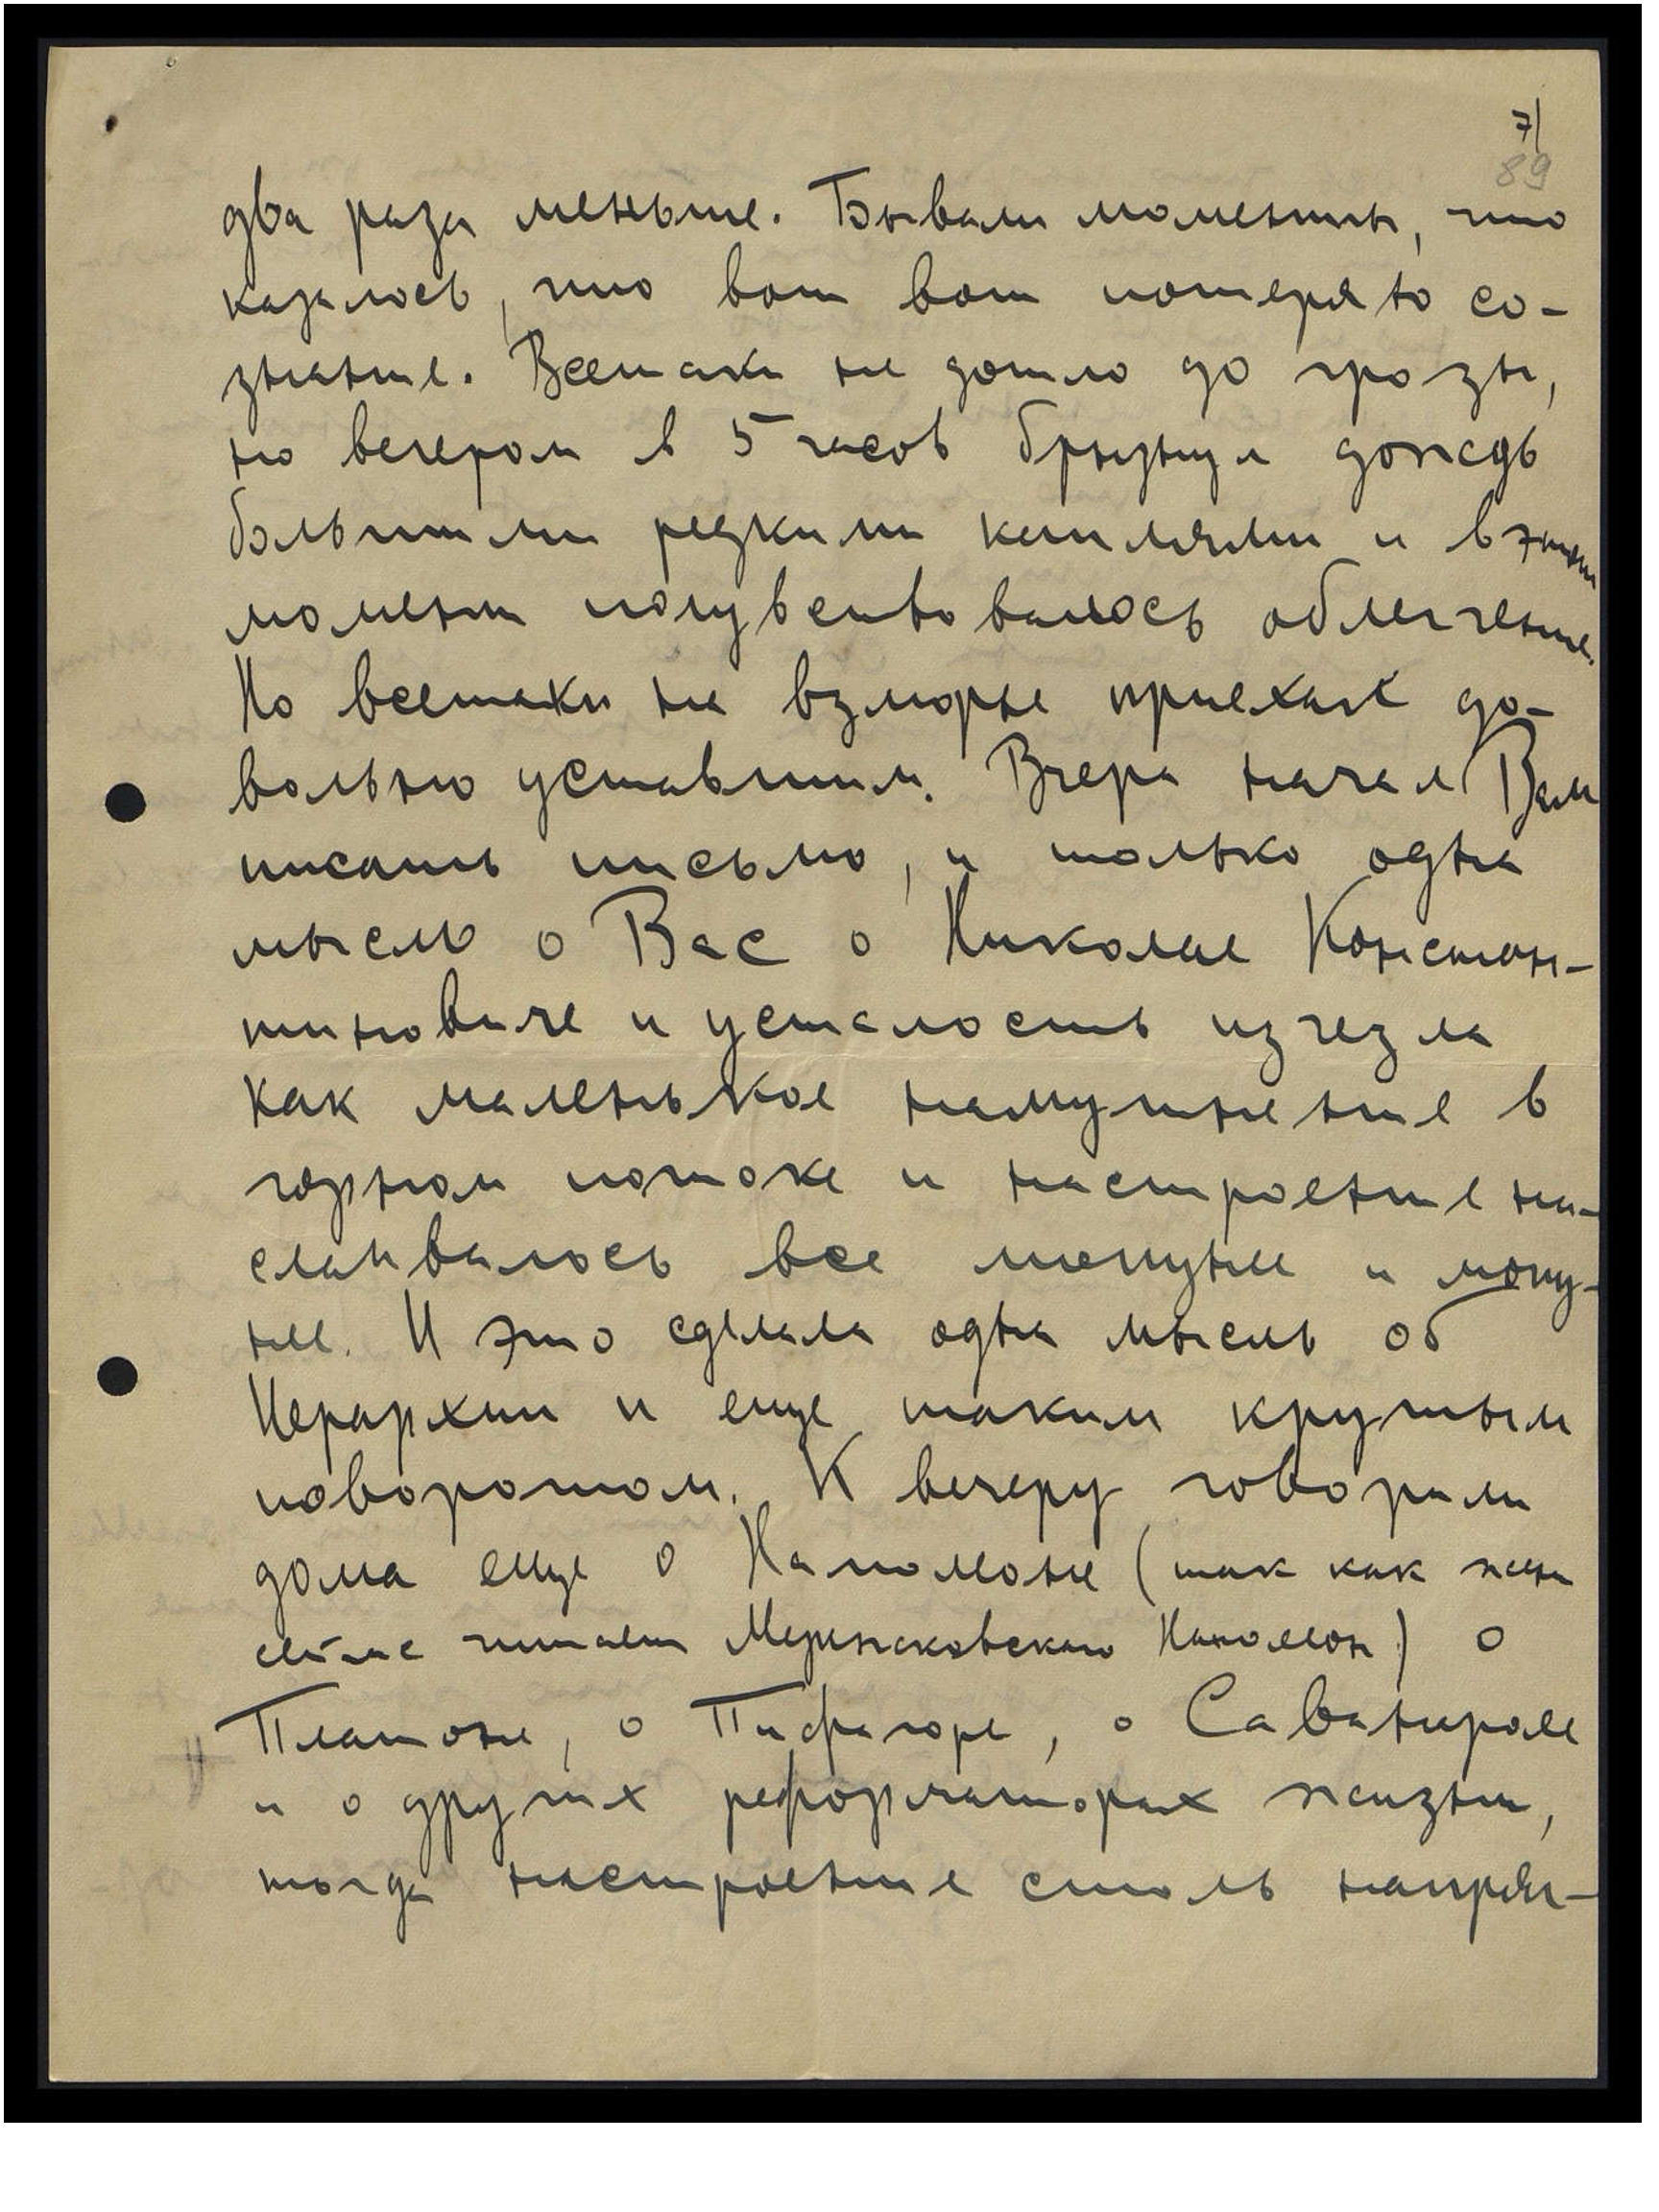 7/
89
два раза меньше. Бывали моменты, что
казалось, что вот вот потеряю со-
знание. Всетаки не дошло до грозы,
но вечером в 5 часов брызнул дождь
большими редкими каплями и в этот
момент почувствовалось облегчение.
Но всетаки на взморье приехал до-
вольно уставшим. Вчера начал Вам
писать письмо, и только одна
мысль о Вас о Николае Констан-
тиновиче и усталость изчезла
как маленькое в
горном потоке и настроение на-
слаивалось все могучее и могу-
чее. И это сделала одна мысль об
Иерархии и еще таким крутым
поворотом. К вечеру говорили
дома еще о Наполеоне (так как жена
сейчас читает Мережковского Наполеон) о
Платоне, о Пифагоре, о Саванароле
и о других реформаторах жизни,
тогда настроение столь напряг-